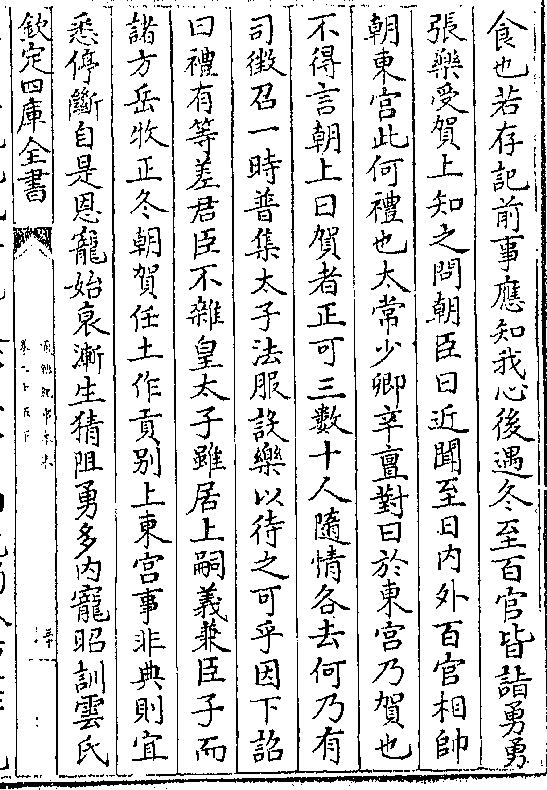 食也若存記前事應知我心後遇冬至百官皆詣勇勇
張樂受賀上知之問朝臣曰近聞至日内外百官相帥
朝東宫此何禮也太常少卿辛亶對曰於東宫乃賀也
不得言朝上曰賀者正可三數十人隨情各去何乃有
司徴召一時普集太子法服設樂以待之可乎因下詔
曰禮有等差君臣不雜皇太子雖居上嗣義兼臣子而
諸方岳牧正冬朝賀任土作貢别上東宫事非典則宜
悉停斷自是恩寵始衰漸生猜阻勇多内寵昭訓雲氏
欽定四庫全書